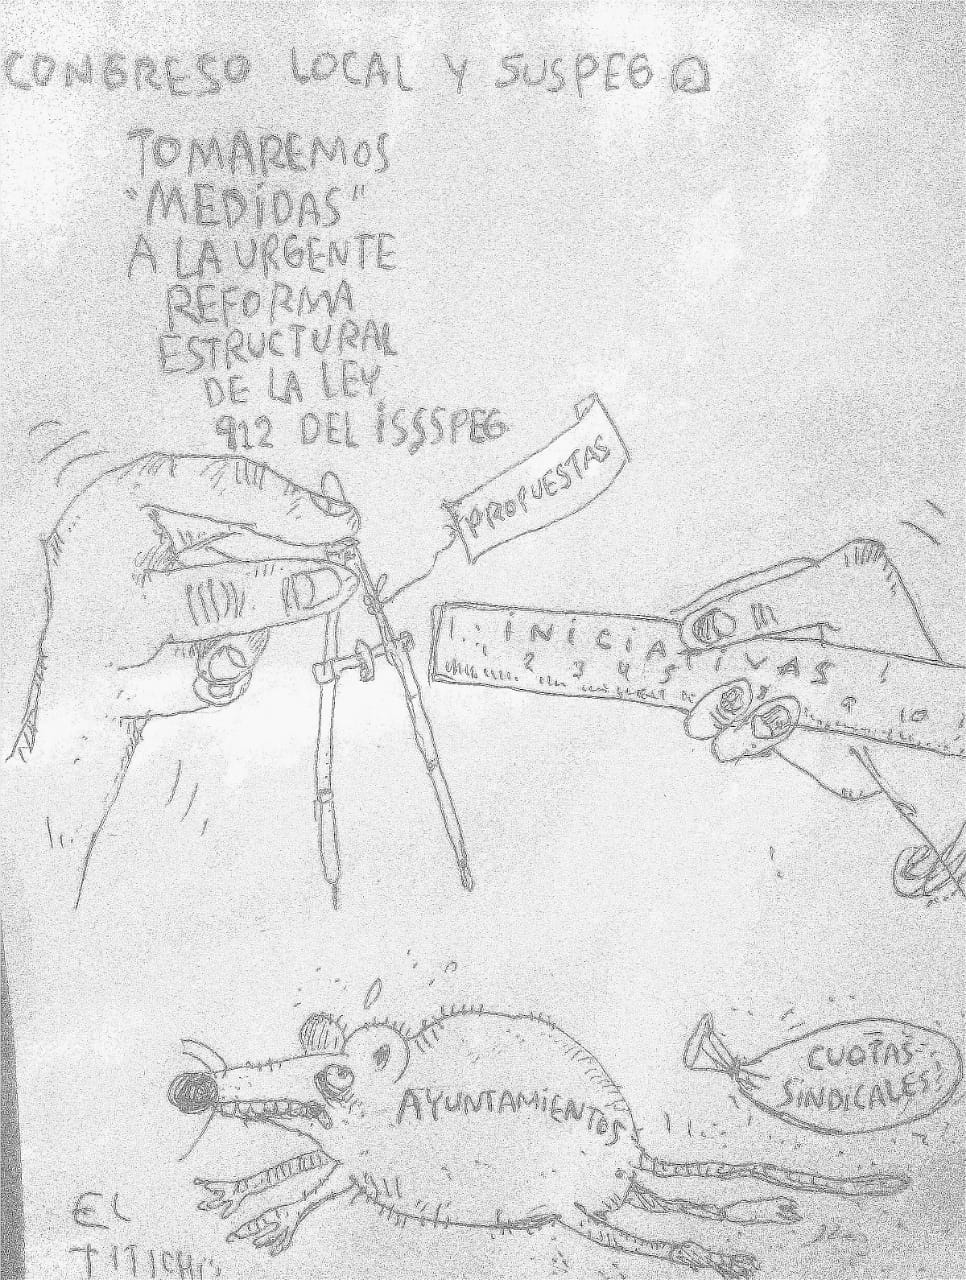 CONGRESO LOCAL Y SUSPEG
TOMAREMOS
"MEDIDAS"
A LA URGENTE
REFORMA
ESTRUCTURAL
DE LA LEY
912 DEL ISSSPEG
PROPUESTAS
INICIATIVAS
1 2 3 4 5 8 9 10
AYUNTAMIENTOS
CUOTAS
SINDICALES!
EL